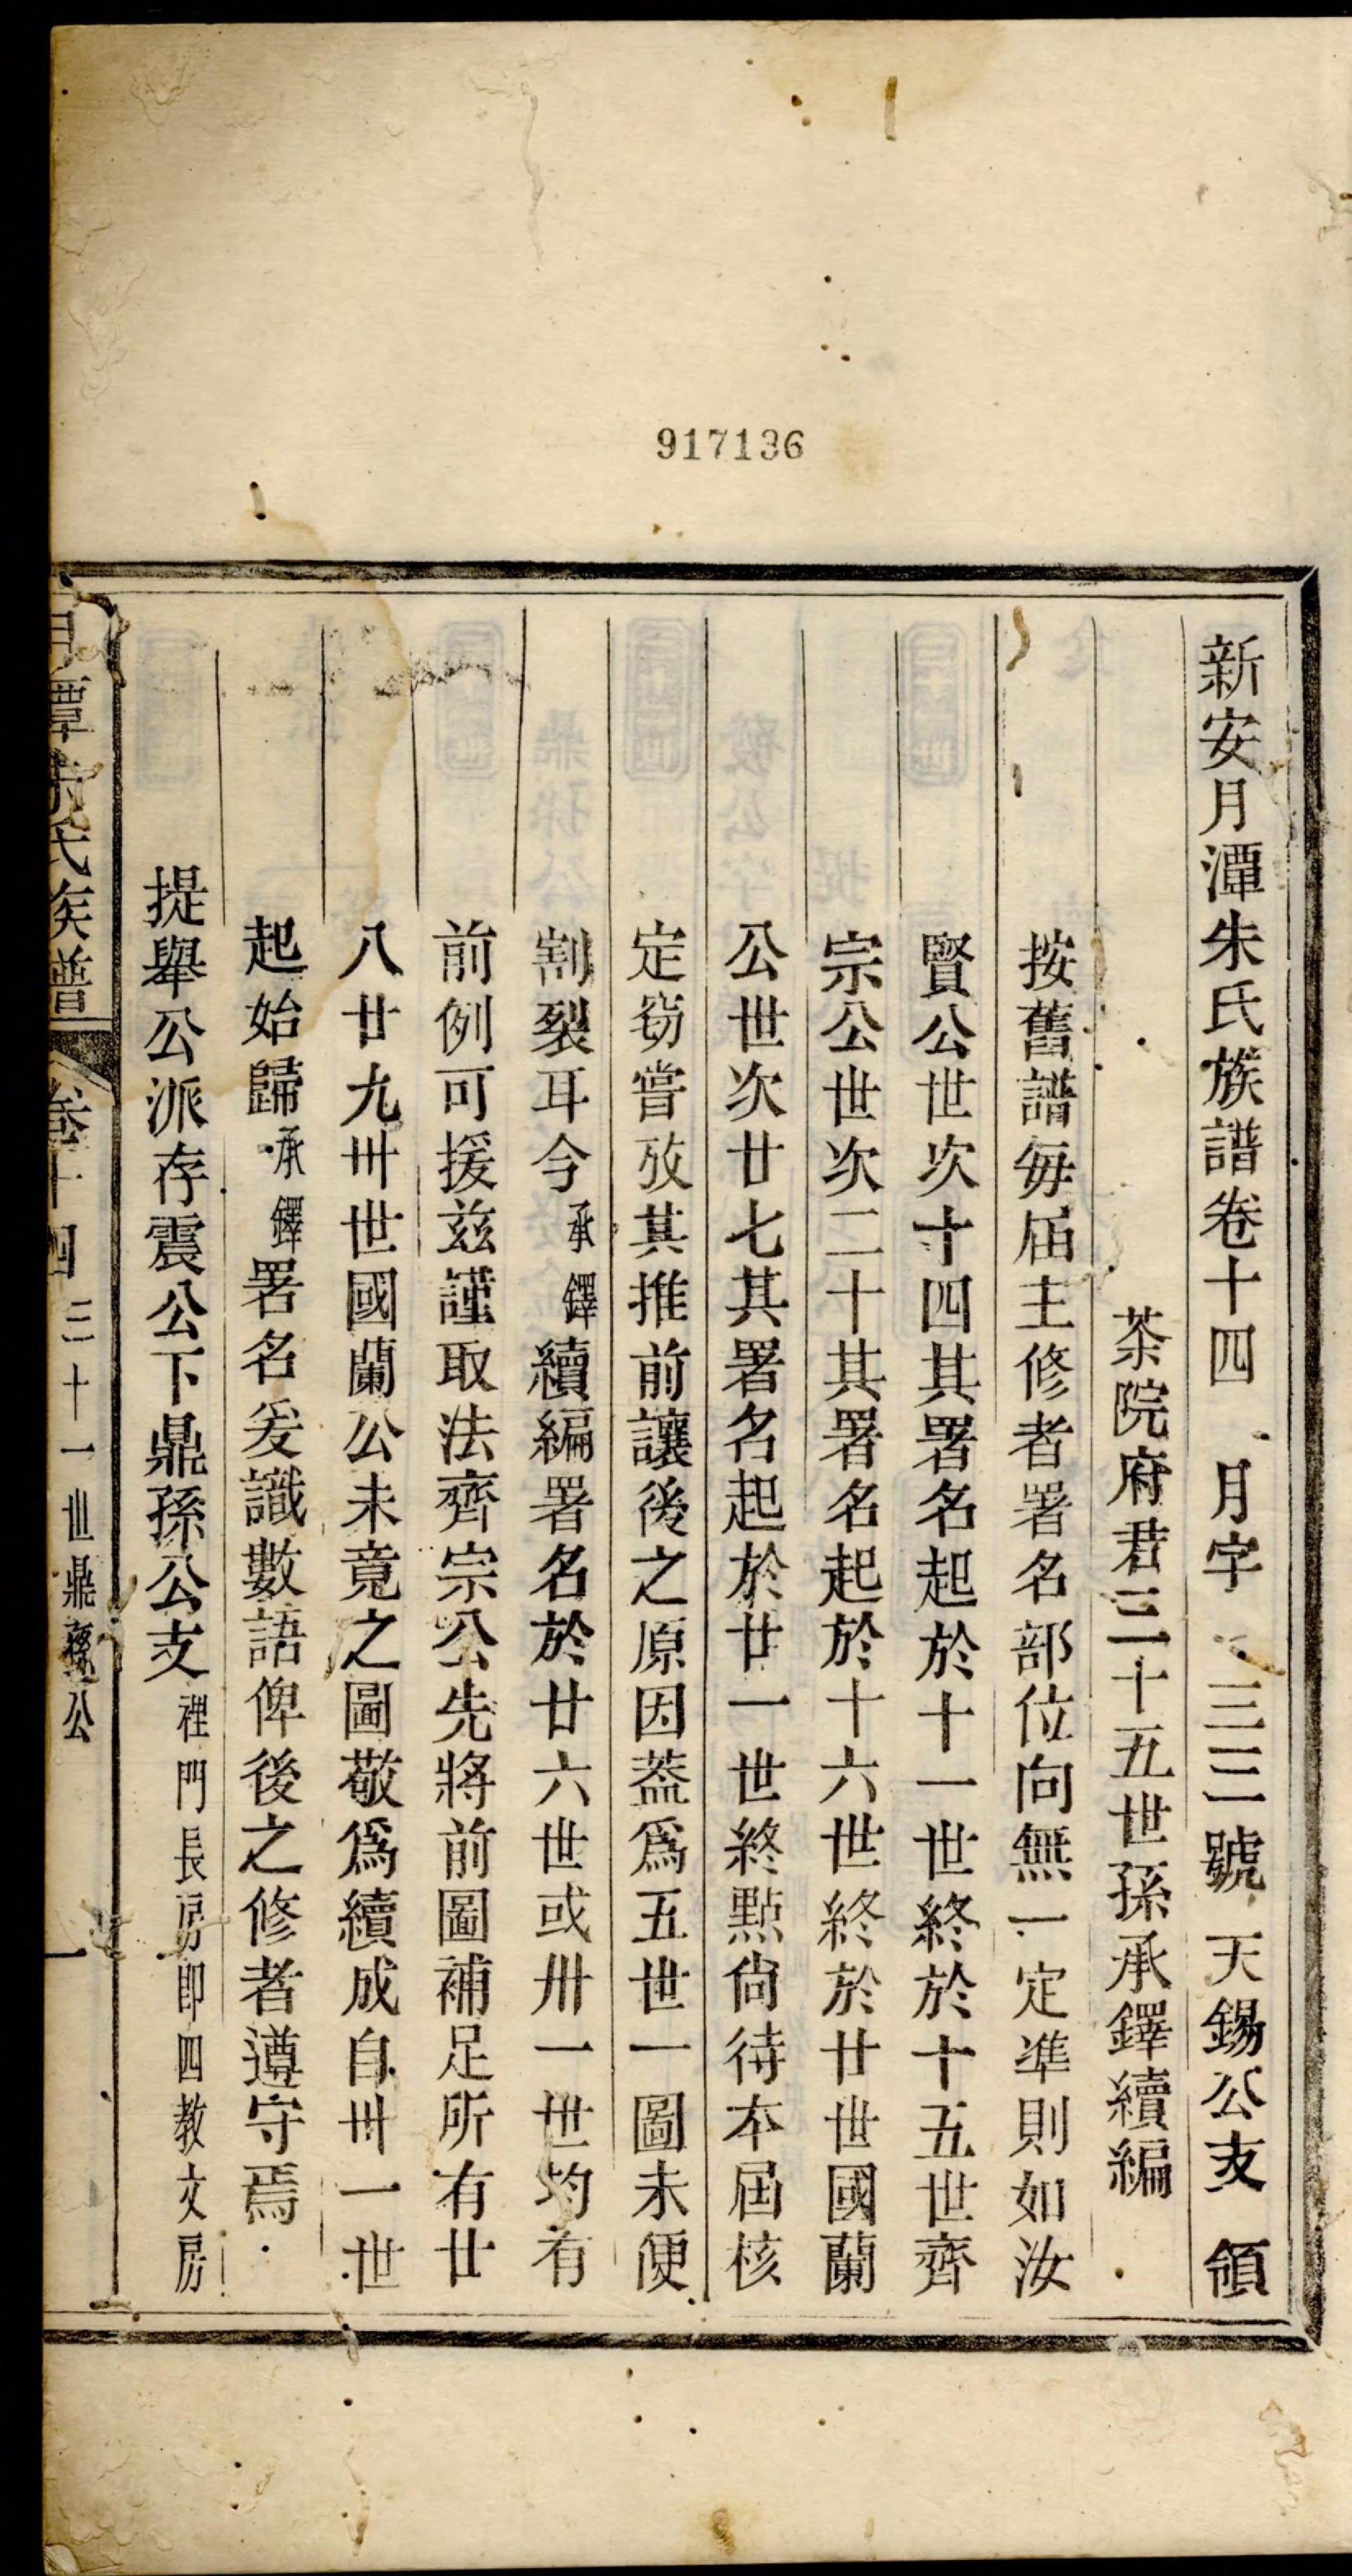 917136
新安月潭朱氏族譜卷十四 月字 三三號 天錫公支 領
茶院府君三十五世孫承鐸續編
按舊譜每屆主修者署名部位向無一定準則如汝
賢公世次十四其署名起於十一世終於十五世齊
宗公世次二十其署名起於十六世終於廿世國蘭
公世次廿七其署名起於廿一世終點尙待本屆核
定窃嘗攷其推前讓後之原因葢爲五世一圖未便
割裂耳今承鐸續編署名於廿六世或卅一世均有
前例可援茲謹取法齊宗公先將前圖補足所有廿
八廿九卅世國蘭公未竟之圖敬爲續成自卅一世
起始歸承鐸署名爰識數語俾後之修者遵守焉
提舉公派存震公下鼎孫公支裡門長房即四教文房
月潭朱氏族譜 卷十四 三十一世鼎孫公 一